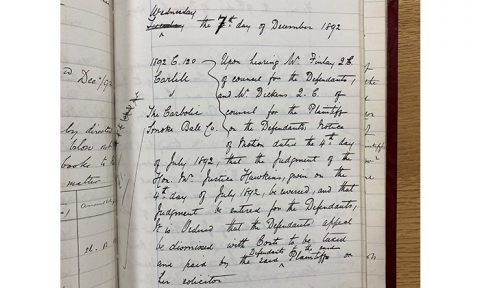 Wednesday
the 7th day of December 1892
1892 C. 120
Carlill
v
The Carbolic
Smoke Ball Co.
Upon hearing Mr Finlay 2.C.
of counsel for the Defendants,
and Mr Dickens 2. C. of
counsel for the Plaintiff
on the Defendants, Notice
of Motion dated the 4th day
of July 1892, that the Judgment of the
Hon. Mr Justice Hawkins, given on the
4th day of July 1892, be reversed, and that
Judgment be entered for the Defendants,
It is Ordered that the Defendants appeal
be dismissed with Costs to be taxed
and paid by the said Defendants to the said Plaintiff or
her solicitor
ed Dec
by direct
below not
books to
matter.